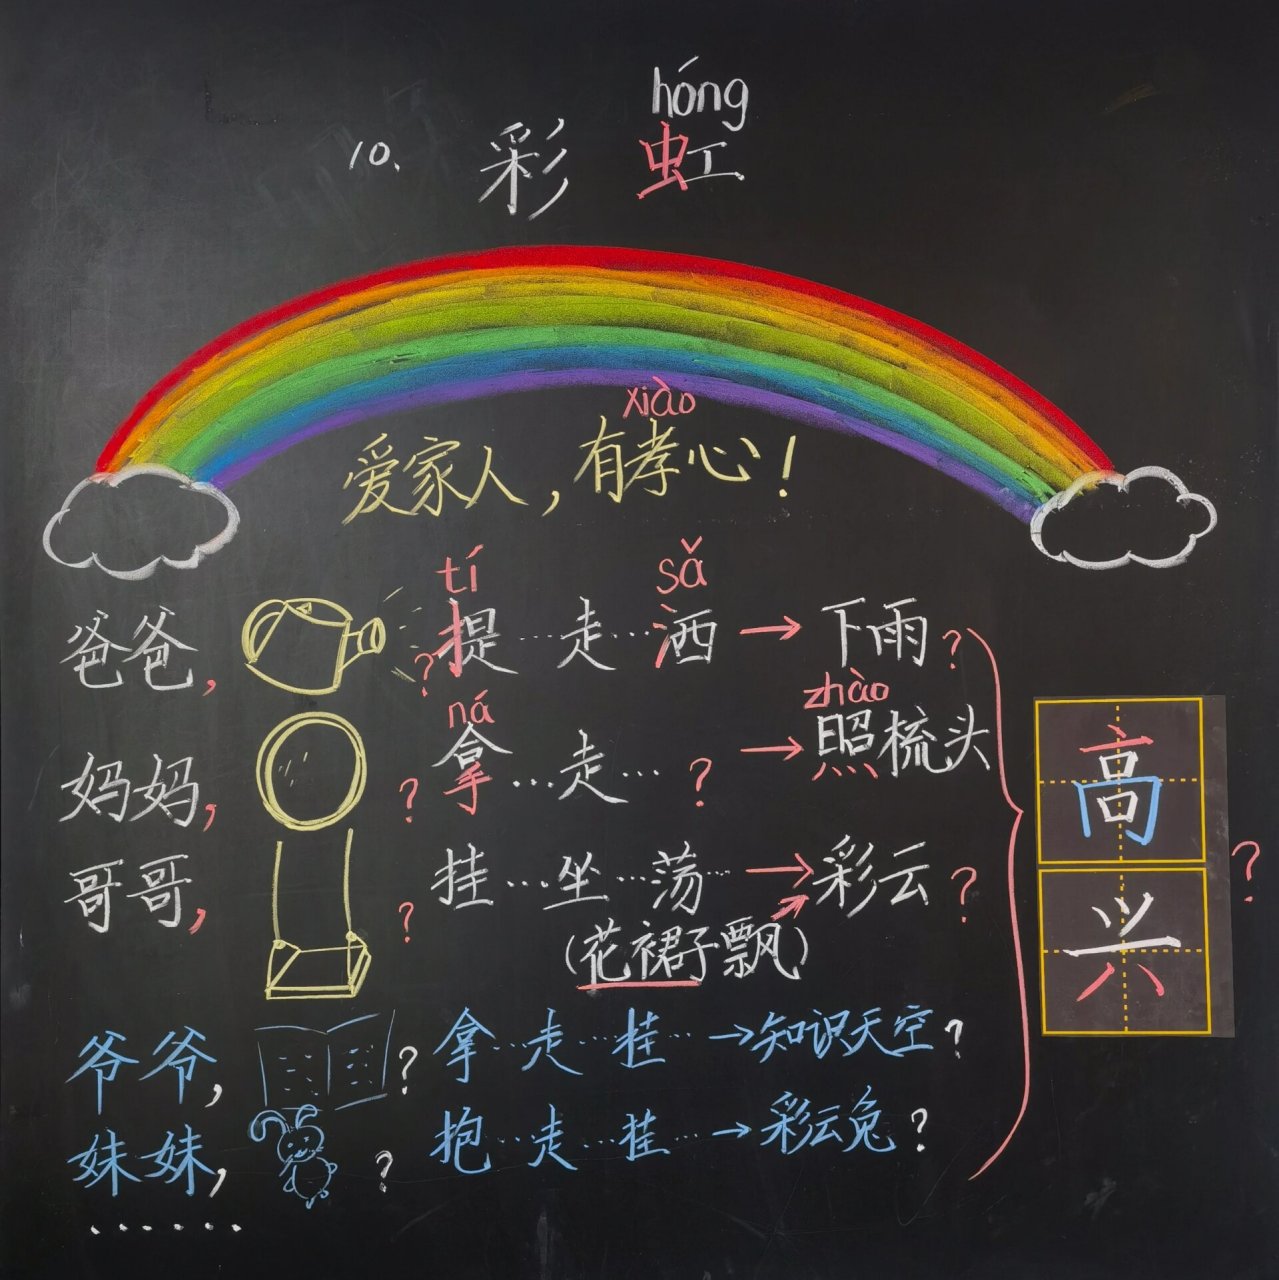 hóng
10、彩虹
xiào
爱家人，有孝心！
tí sǎ
爸爸，？提…走…洒→下雨？
ná zhào
妈妈，？拿…走…？→照梳头
哥哥，？挂…坐…荡…→彩云？
(花裙子飘)
高兴？
爷爷，？拿…走…挂…→知识天空？
妹妹，？抱…走…挂…→彩云兔？
……